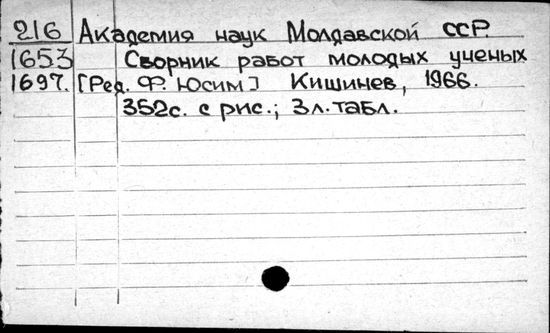 216 Академия наук Молдавской ССР.
1653 Сборник работ молодых ученых
1697. [Ред. Ф. Юсим] Кишинев, 1966.
352с. с рис.; 3л. табл.